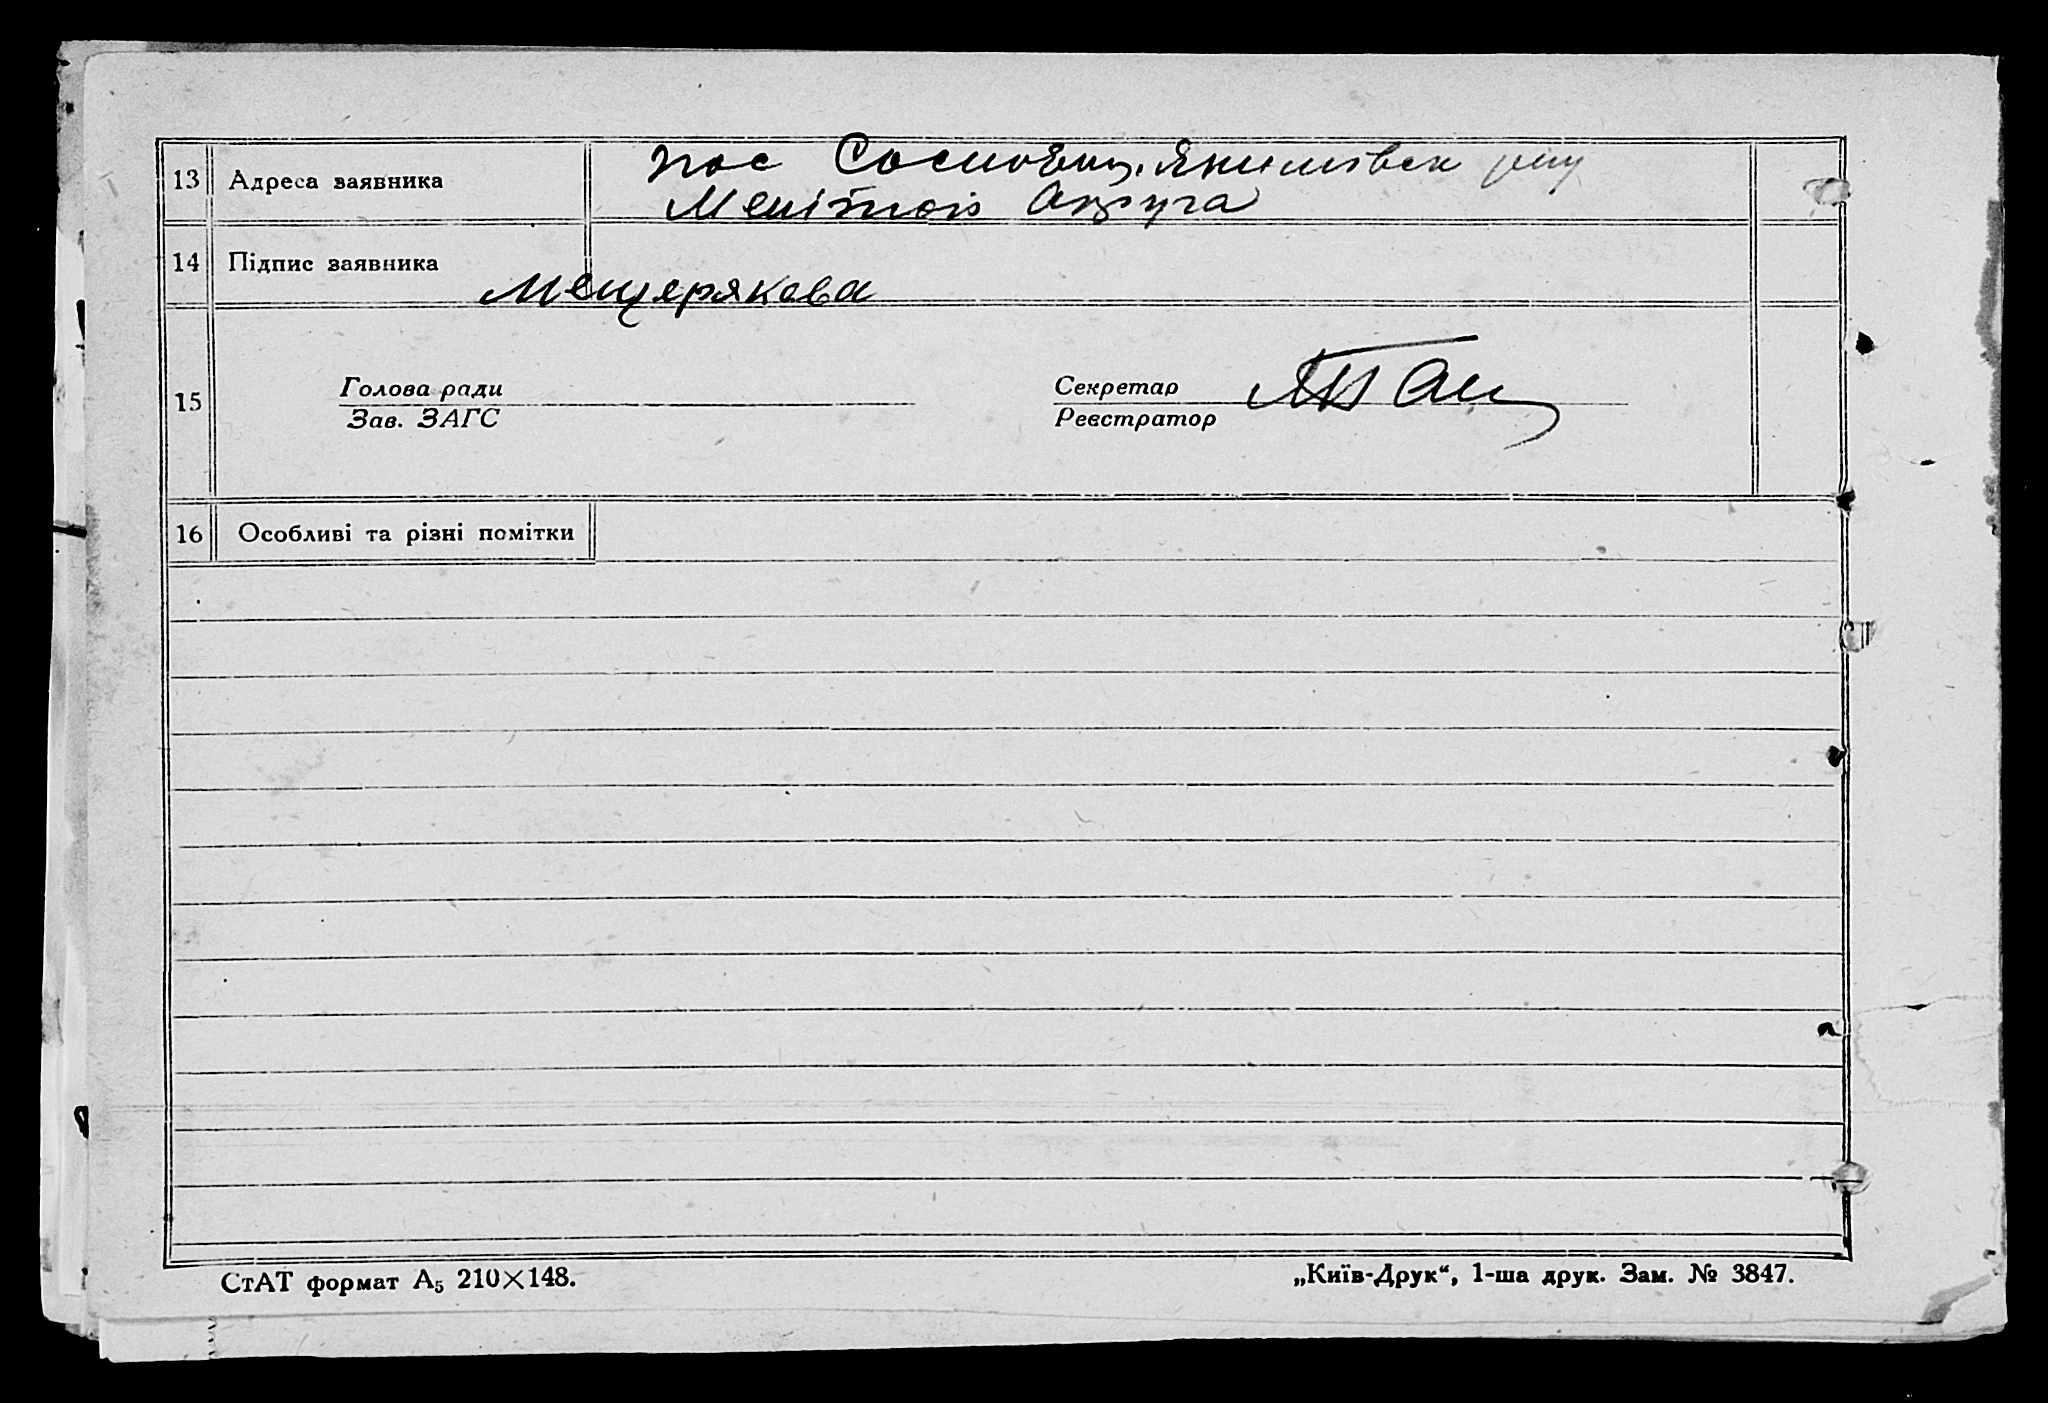 13 Адреса заявника
пос Сосновец. Якимовск р-ну
Меліт окр Округа
14 Підпис заявника
Мещерякова
15
Голова ради
Зав. ЗАГС
Секретар
Реєстратор
16 Особливі та різні помітки
СтАТ формат А₅ 210×148.
„Київ-Друк“, 1-ша друк. Зам. № 3847.